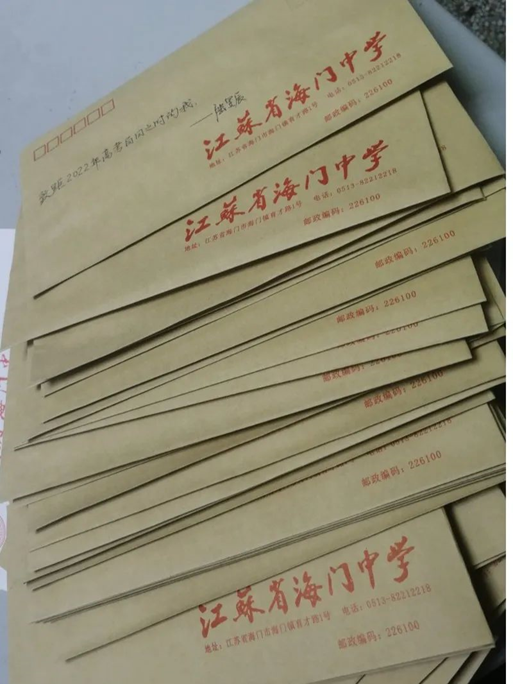 致距2022年高考百日之时的我,
江苏省海门中学
地址:江苏省海门市海门镇育才路1号 电话:0513-82212218
邮政编码:226100
江苏省海门中学
地址:江苏省海门市海门镇育才路1号 电话:0513-82212218
邮政编码:226100
邮政编码:226100
邮政编码:226100
邮政编码:226100
邮政编码:226100
邮政编码:226100
江苏省海门中学
地址:江苏省海门市海门镇育才路1号 电话:0513-82212218
邮政编码:226100